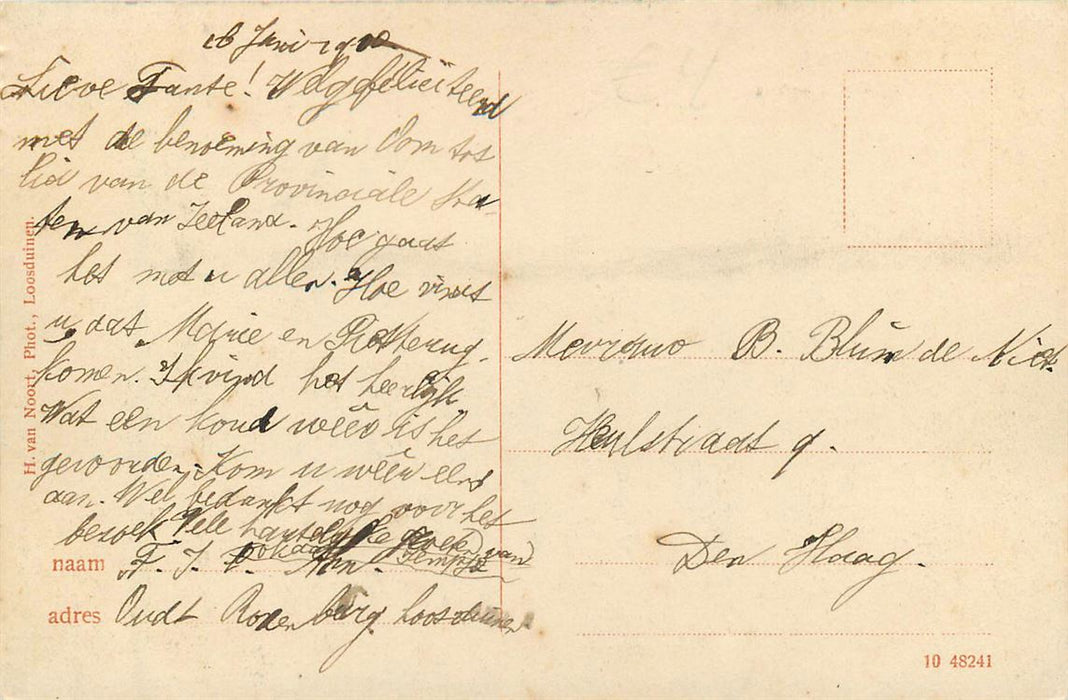 16 Juni 1910
Lieve Tante! Wel gefeliciteerd
met de benoeming van Oom tot
lid van de Provinciale Sta-
ten van Zeeland. Hoe gaat
het met u allen. Hoe vindt
u dat Marie en terug-
komen. Ik vind het heerlijk.
Wat een koud wêer is het
geworden. Kom u wêer eens
aan. Wel bedankt nog voor het
bezoek. Vele hartelijke van
naam F. J.
adres Oudt Rodenburg Loosduinen
H. van Noort, Phot., Loosduinen.
£4
Mevrouw B. Blum de Niet
Hulstraat 9.
Den Haag.
10 48241